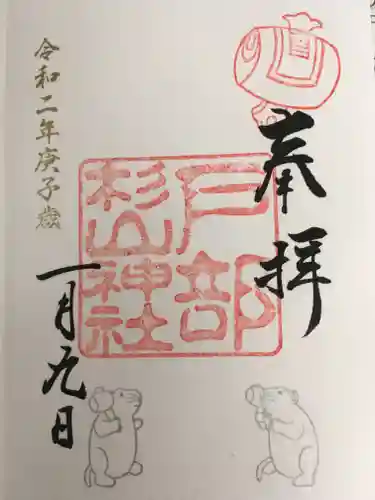 奉拝
戸部
杉山
神社
令和二年庚子歳
一月九日